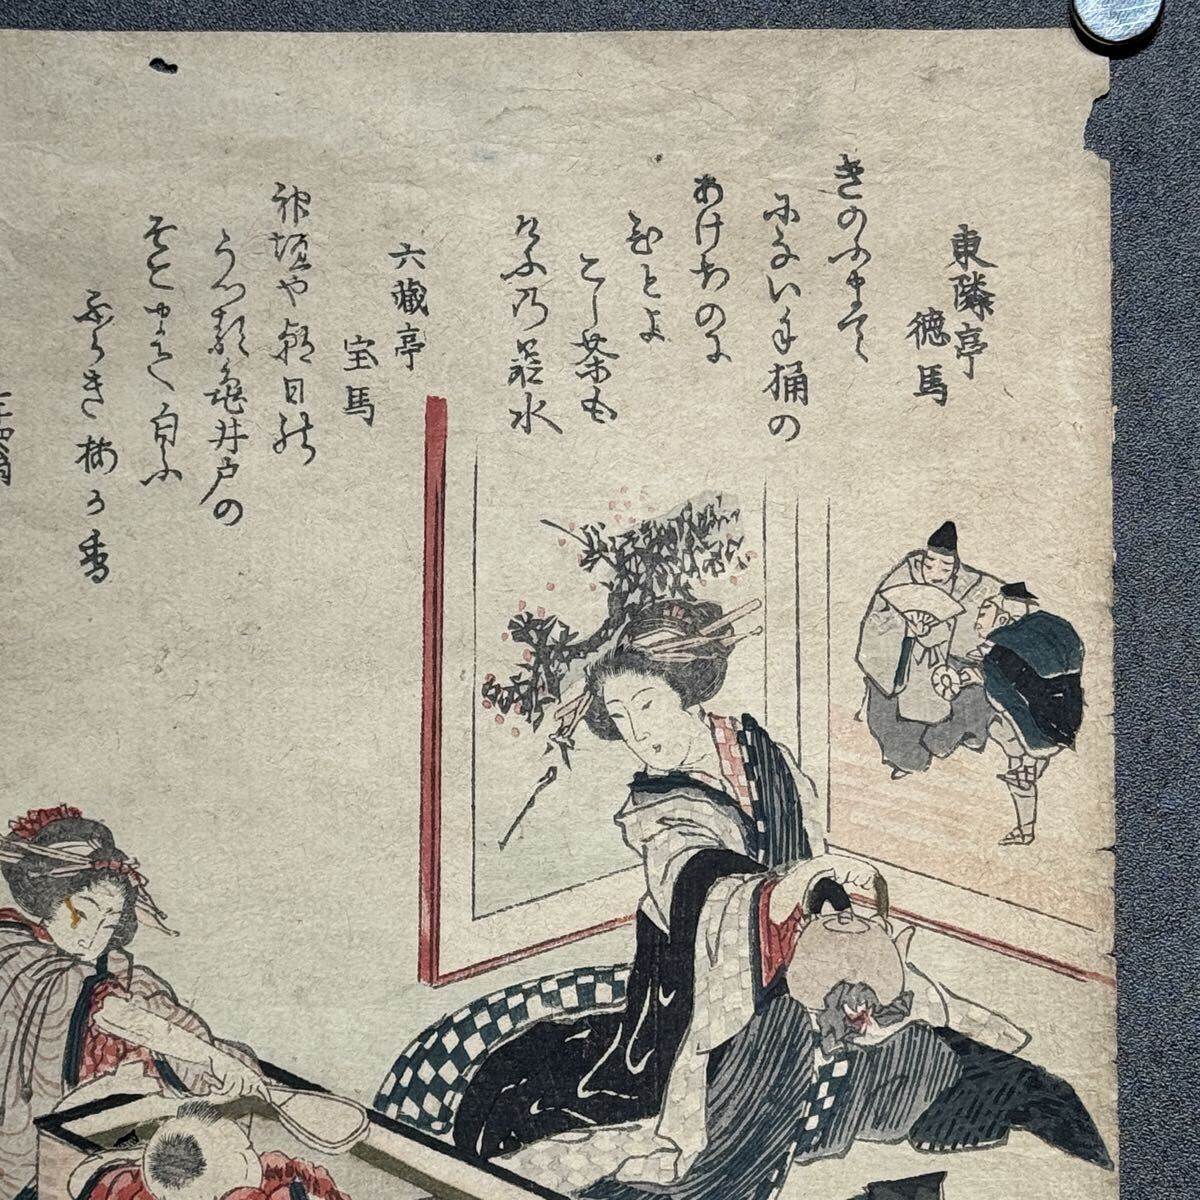 東隣亭
徳馬
きのふまて
にない手桶の
あけちのに
むとよ
こし茶も
けふ乃若水
六藏亭
宝馬
神垣や朝日の
うつる亀井戸の
そとまて白ふ
ふらき梅か香